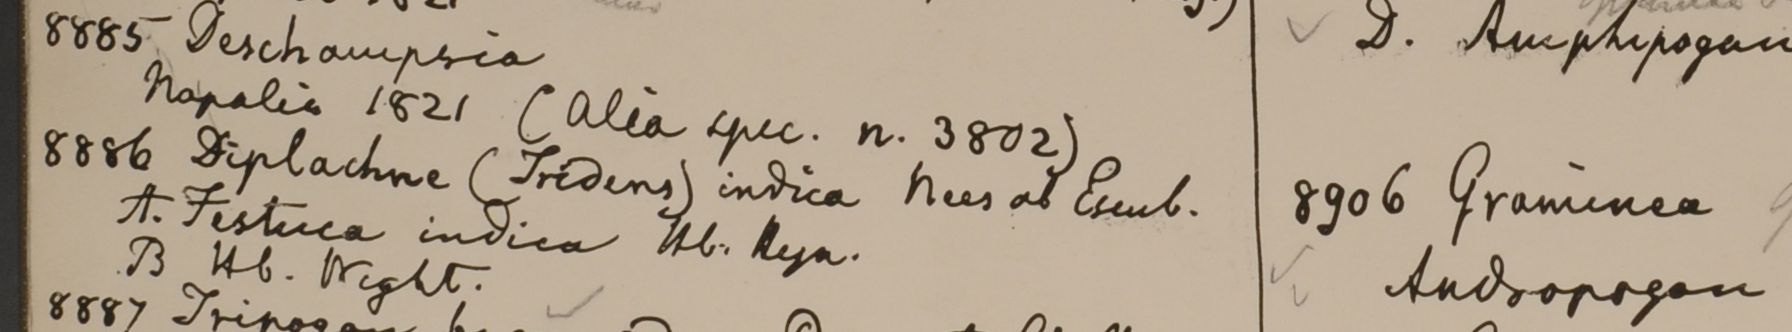 1821
8885 Deschampsia
Napalia 1821 (Alia spec. n. 3802)
8886 Diplachne (Tridens) indica Nees ab Esenb.
A. Festuca indica Hb. Heyn.
B Hb. Wight.
8887 Tripogon
D. Amphipogon
8906 Graminea
Andropogon